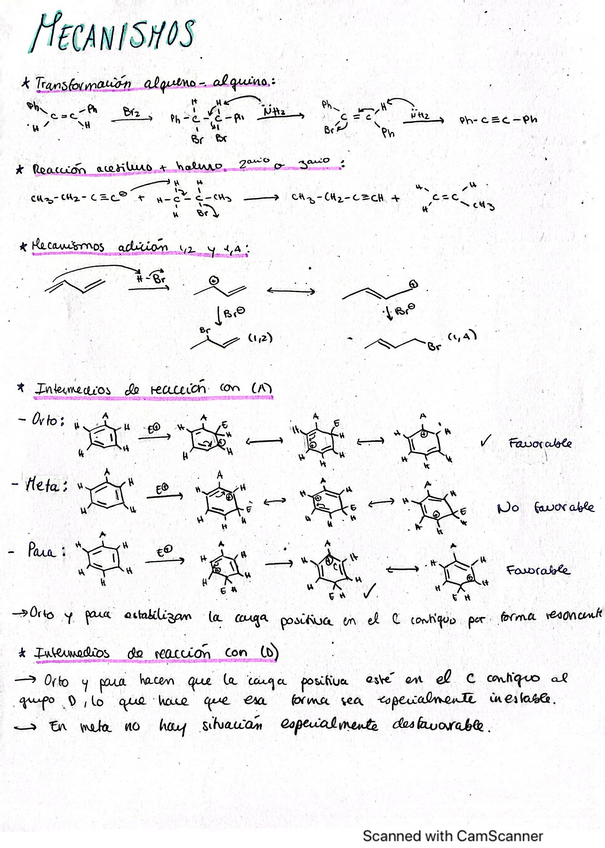 MECANISMOS
* Transformación alqueno-alquino:
Br2 NH2 NH2 Ph-C≡C-Ph
* Reacción acetiluro + haluro 2ario o 3ario:
CH3-CH2-C≡C⊖ + H-C-C-CH3 → CH3-CH2-C≡CH +
* Mecanismos adición 1,2 y 1,4:
H-Br
Br⊖ Br⊖
Br (1,2) Br (1,4)
* Intermedios de reacción con (A)
- Orto: E⊕ ✓ Favorable
- Meta: E⊕ No favorable
- Para: E⊕ Favorable
→ Orto y para estabilizan la carga positiva en el C contiguo por forma resonante
* Intermedios de reacción con (D)
→ Orto y para hacen que la carga positiva esté en el C contiguo al
grupo D, lo que hace que esa forma sea especialmente inestable.
→ En meta no hay situación especialmente desfavorable.
Scanned with CamScanner